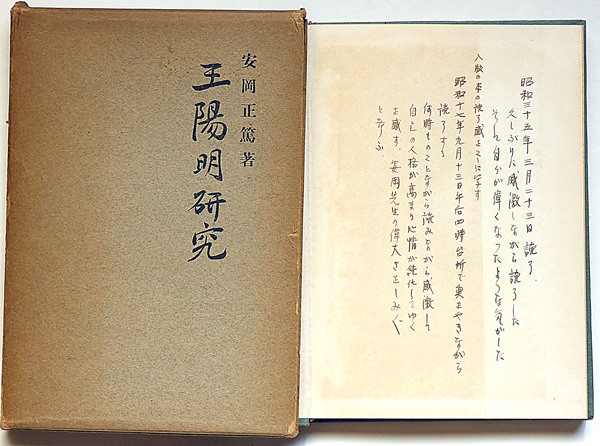 安岡正篤著
王陽明研究
昭和三十五年三月二十三日読了.
久しぶりに感激しながら読了した
そして自分が偉くなったような気がした
入版の本の読了感をここに写す
昭和十七年九月十三日午后四時台所で奥をやきながら
読了する
何時ものことながら読みながら感激して
自己の人格が高まり心情が純化してゆく
を感す. 安岡先生の偉大さをしみぐ
と思ふ.